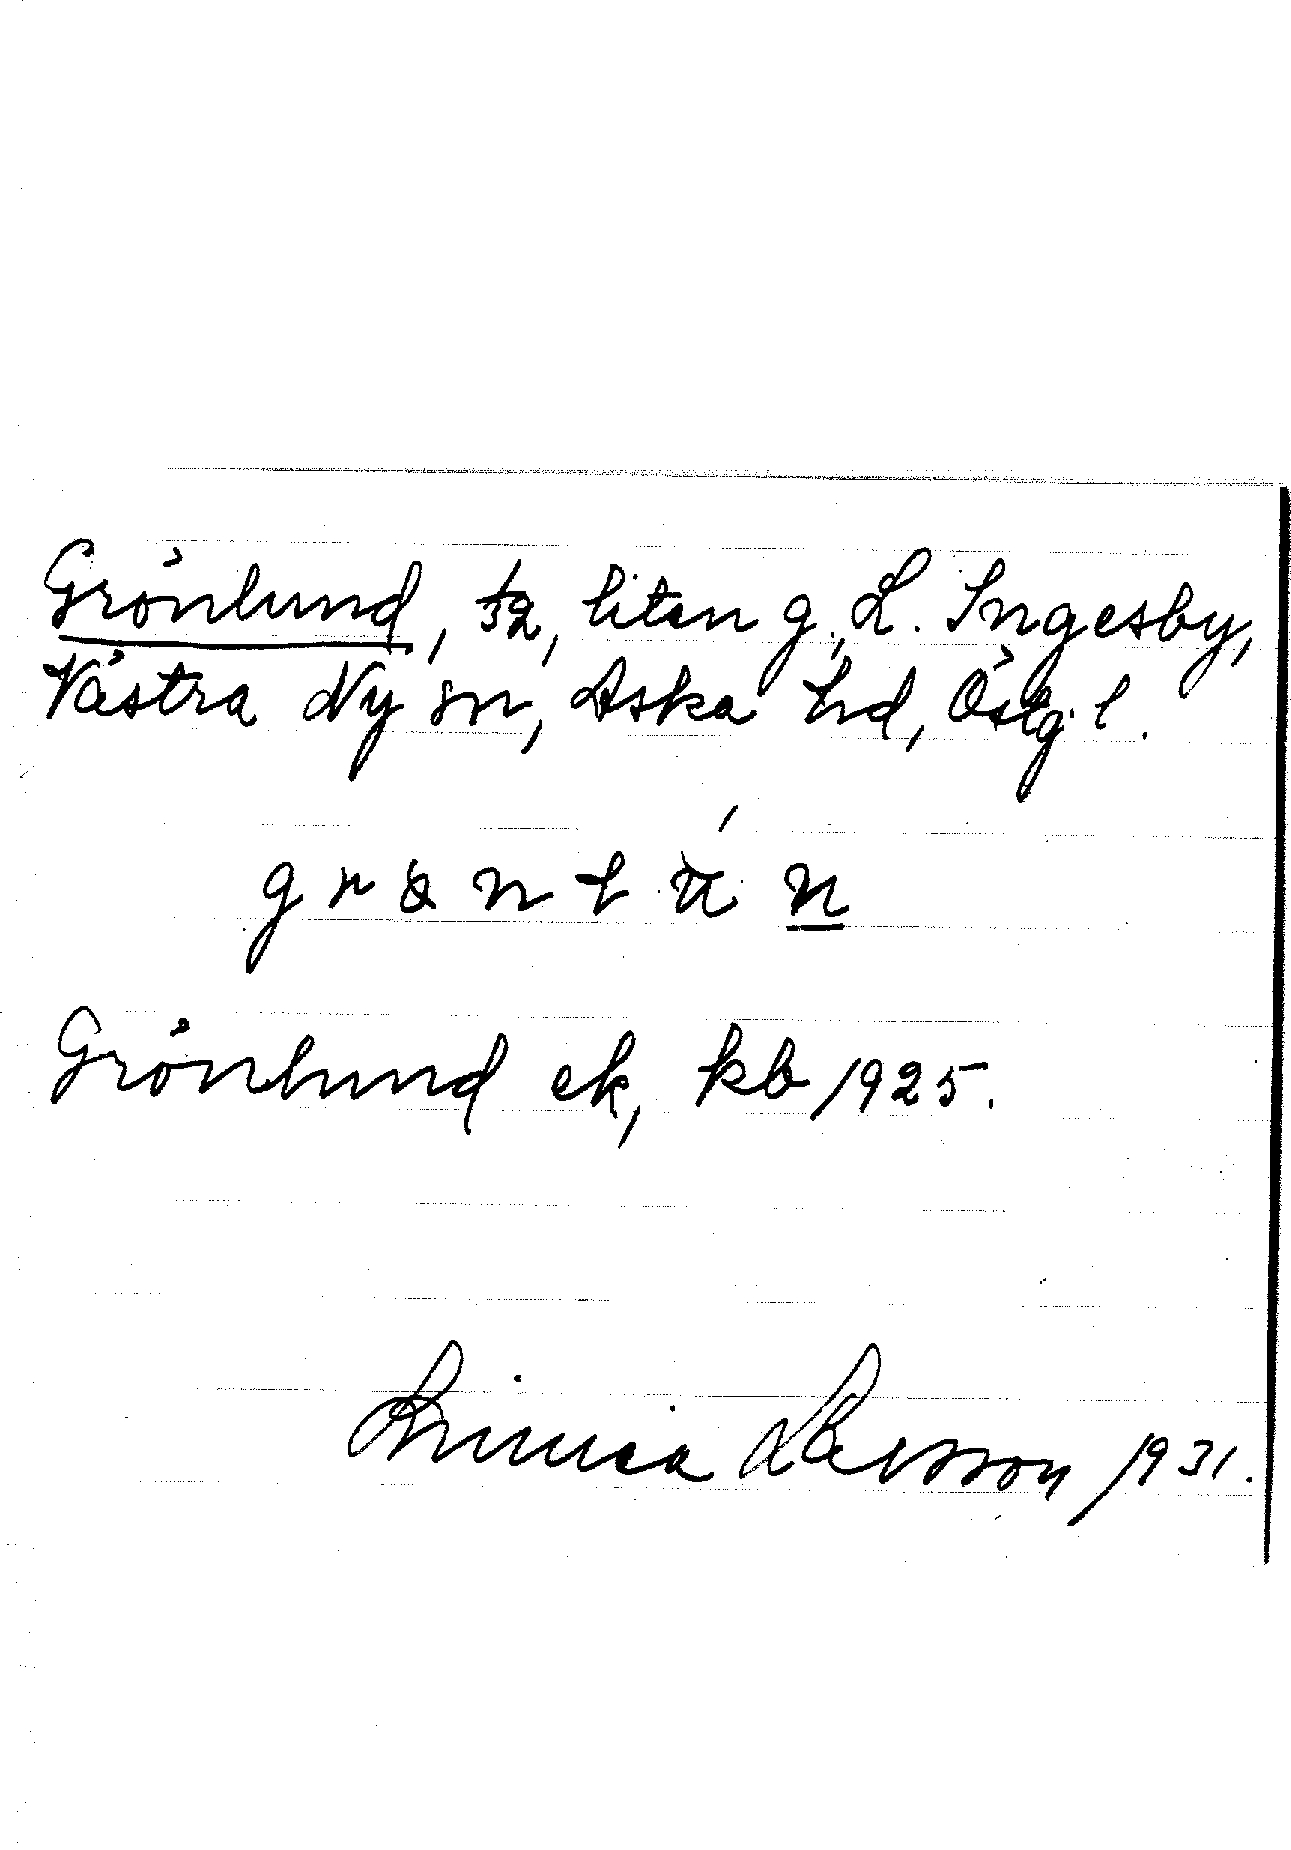 Grönlund, tp, liten g., L. Ingesby,
Västra Ny sn, Aska hd, Östg. l.
Grönlund ek, kb 1925.
Linnéa Larsson 1931.